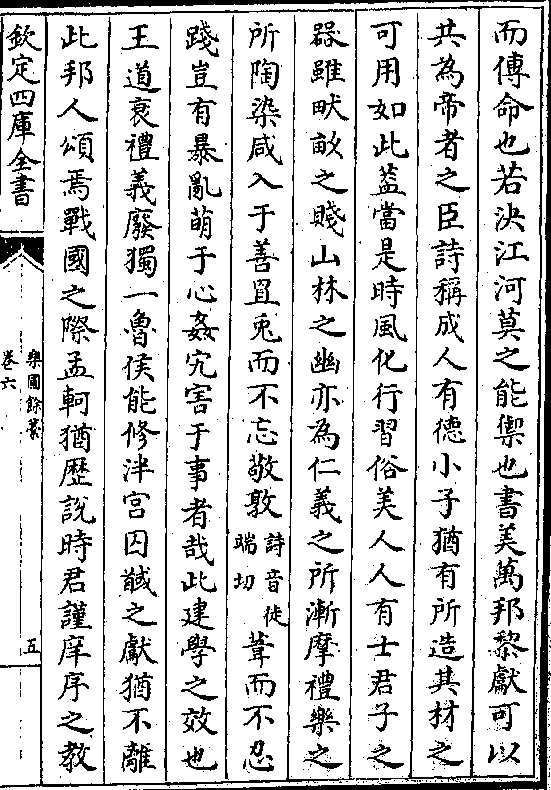 而傳命也若決江河莫之能禦也書美萬邦黎獻可以
共為帝者之臣詩稱成人有德小子猶有所造其材之
可用如此葢當是時風化行習俗美人人有士君子之
器雖畎畝之賤山林之幽亦為仁義之所漸摩禮樂之
所陶染咸入于善罝兎而不忘敬敦詩音徒端切葦而不忍
踐豈有暴亂萌于心姦宄害于事者哉此建學之效也
王道衰禮義廢獨一魯侯能修泮宮囚馘之獻猶不離
此邦人頌焉戰國之際孟軻猶歴說時君謹庠序之教
欽定四庫全書
樂圃餘藁
卷六
五